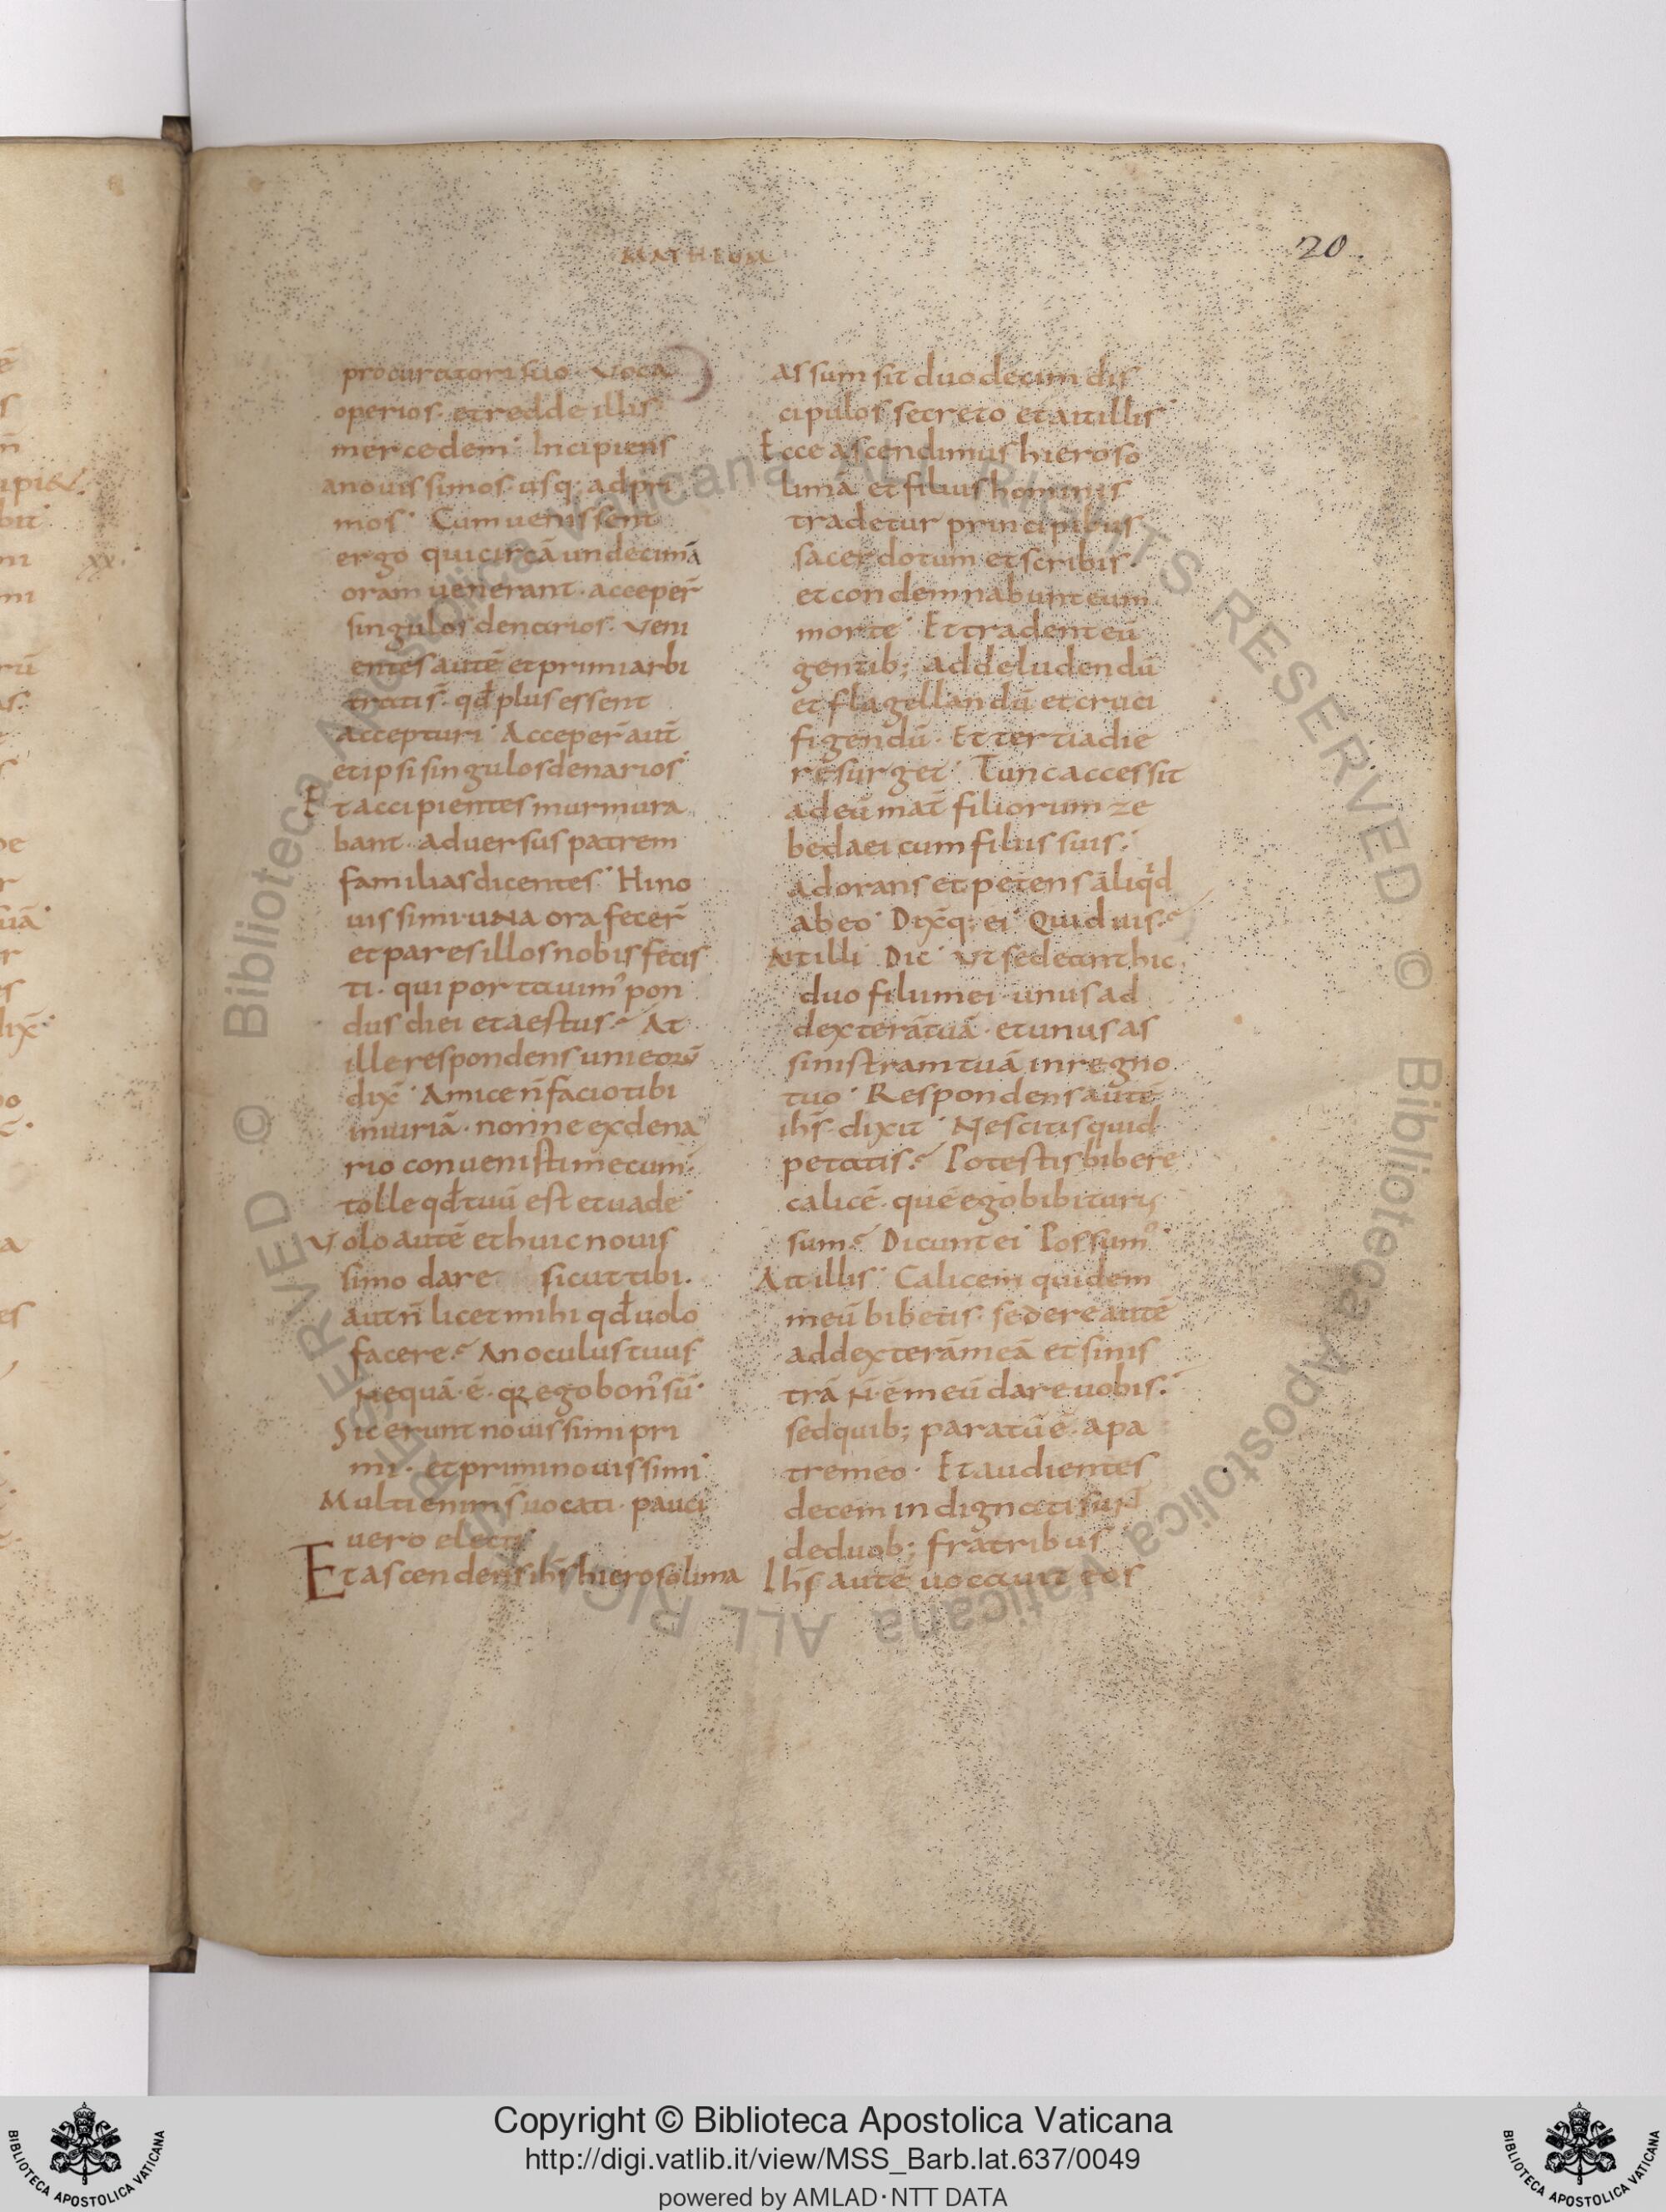 MATHEUM
20.
procuratori suo. Voca
operios. et redde illis
mercedem. Incipiens
anouissimos usq; adpri
mos. Cum uenissent
ergo qui circā undecimā
oram uenerant. acceper̄
singulos denarios. Veni
entes autē et primi arbi
trati s̄. qđ plus essent
accepturi. Acceper̄ aut̄
et ipsi singulos denarios.
Et accipientes murmura
bant aduersus patrem
familias dicentes. Hi no
uissimi una ora fecer̄
et pares illos nobis fecis
ti. qui portauim᾽ pon
dus diei et aestus. At
ille respondens uni eorū
dix̄. Amice n̄ facio tibi
iniuriā. nonne ex dena
rio conuenisti mecum.
tolle qđ tuū est et uade.
Volo autē et huic nouis
simo dare sicut tibi.
aut n̄ licet mihi qđ uolo
facere. An oculus tuus
nequā. ē. quia ego bon᾽ sū.
Sic erunt nouissimi pri
mi. et primi nouissimi.
Multi enim s̄ uocati. pauci
uero electi.
Et ascendens ihs̄ hierosolima
assumsit duodecim dis
cipulos secreto et ait illis.
Ecce ascendimus hieroso
limā et filius hominis
tradetur principibus
sacerdotum et scribis.
et condemnabunt eum
morte. Et tradent eū
gentib; ad deludendū
et flagellandū et cruci
figendū. Et tertia die
resurget. Tunc accessit
ad eū mat̄ filiorum ze
bedaei cum filiis suis.
adorans et petens aliqd
ab eo. Dix̄q; ei. Quid uis.
At illi Dic. Ut sedeant hic
duo filii mei. unus ad
dexterā tuā. et unus as
sinistram tuā in regno
tuo. Respondens autē
ihs̄. dixit. Nescitis quid
petatis. Potestis bibere
calicē. quē ego bibiturus
sum. Dicunt ei. Possum᾽.
Ait illis. Calicem quidem
meū bibetis. sedere autē
ad dexterā meā et sinis
trā N̄. ē meū dare uobis.
sed quib; paratū ē. a pa
tre meo. Et audientes
decem indignati sunt
de duob; fratribus
Ihs̄ autē uocauit eos
Copyright © Biblioteca Apostolica Vaticana
http://digi.vatlib.it/view/MSS_Barb.lat.637/0049
powered by AMLAD・NTT DATA